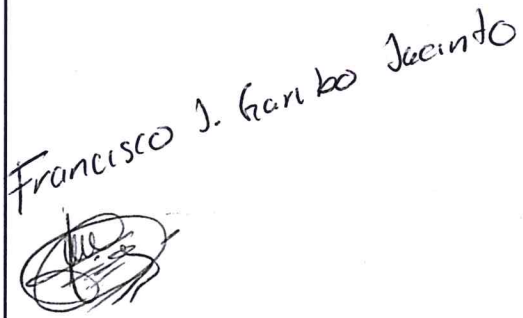 Francisco J. Garibo Jacinto